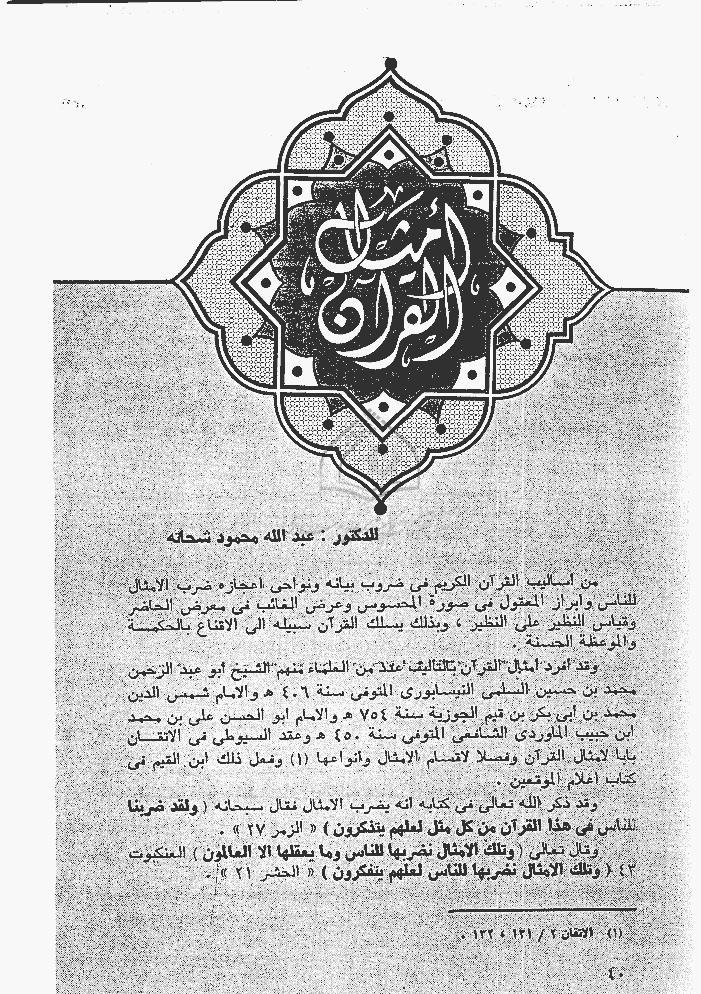 أمثال
القرآن
للدكتور : عبد الله محمود شحاته
من أساليب القرآن الكريم فى ضروب بيانه ونواحى اعجازه ضرب الامثال
للناس وابراز المعقول فى صورة المحسوس وعرض الغائب فى معرض الحاضر
وقياس النظير على النظير ، وبذلك يسلك القرآن سبيله الى الاقناع بالحكمة
والموعظة الحسنة .
وقد أفرد أمثال القرآن بالتأليف عدد من العلماء منهم الشيخ أبو عبد الرحمن
محمد بن حسين السلمى النيسابورى المتوفى سنة ٤٠٦ هـ والامام شمس الدين
محمد بن أبى بكر بن قيم الجوزية سنة ٧٥٤ هـ والامام ابو الحسن على بن محمد
ابن حبيب الماوردى الشافعى المتوفى سنة ٤٥٠ هـ وعقد السيوطى فى الاتقــان
بابا لامثال القرآن وفصلا لاقسام الامثال وأنواعها (١) وفعل ذلك ابن القيم فى
كتاب أعلام الموقعين .
وقد ذكر الله تعالى فى كتابه أنه يضرب الامثال فقال سبحانه ( ولقد ضربنا
للناس فى هذا القرآن من كل مثل لعلهم يتذكرون ) « الزمر ٢٧ » .
وقال تعالى ( وتلك الامثال نضربها للناس وما يعقلها الا العالمون ) العنكبوت
٤٣ ( وتلك الامثال نضربها للناس لعلهم يتفكرون ) « الحشر ٢١ » .
(١) الاتقان ٢ / ١٣١ ، ١٣٢ .
٤٠